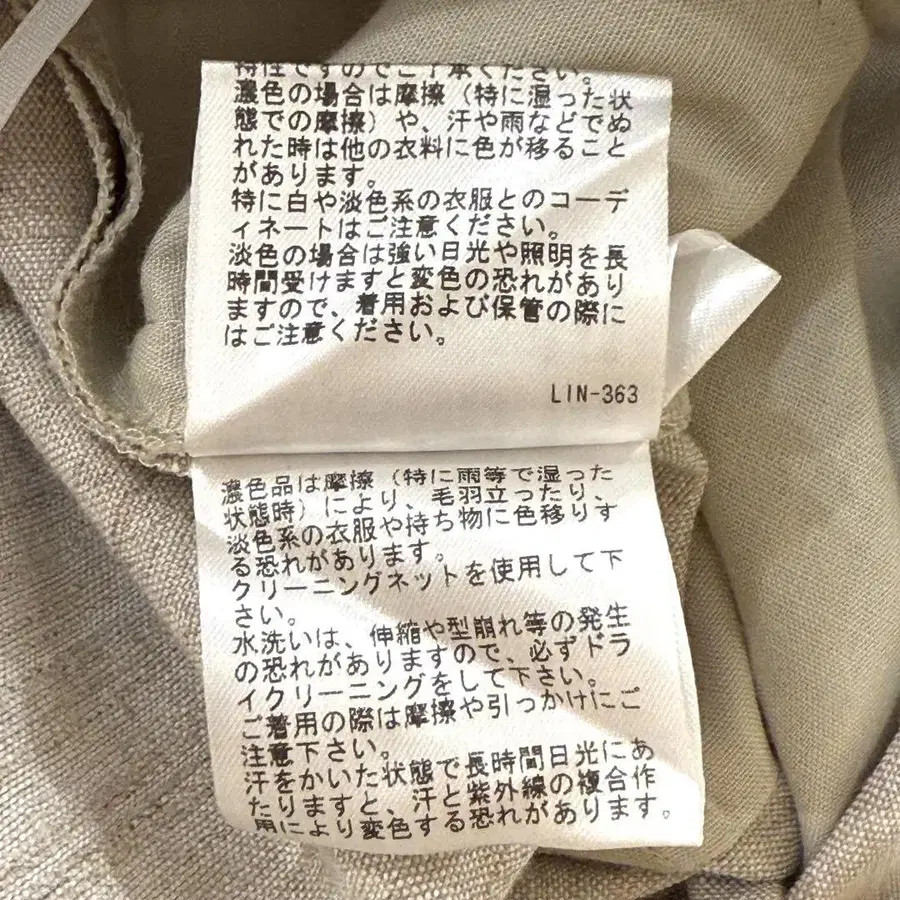 特性ですのでご了承ください。
濃色の場合は摩擦（特に湿った状
態での摩擦）や、汗や雨などでぬ
れた時は他の衣料に色が移ること
があります。
特に白や淡色系の衣服とのコーデ
ィネートはご注意ください。
淡色の場合は強い日光や照明を長
時間受けますと変色の恐れがあり
ますので、着用および保管の際に
はご注意ください。
LIN-363
濃色品は摩擦（特に雨等で湿った
状態時）により、毛羽立ったり、
淡色系の衣服や持ち物に色移りす
る恐れがあります。
クリーニングネットを使用して下
さい。
水洗いは、伸縮や型崩れ等の発生
の恐れがありますので、必ずドラ
イクリーニングをして下さい。
ご着用の際は摩擦や引っかけにご
注意下さい。
汗をかいた状態で長時間日光にあ
たりますと、汗と紫外線の複合作
用により変色する恐れがあります。